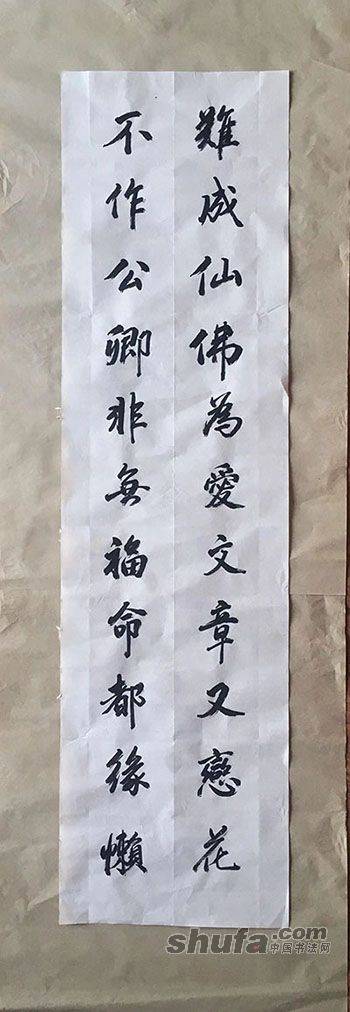 難成仙佛為愛文章又戀花
不作公卿非無福命都緣懶
shufa.com
中国书法网